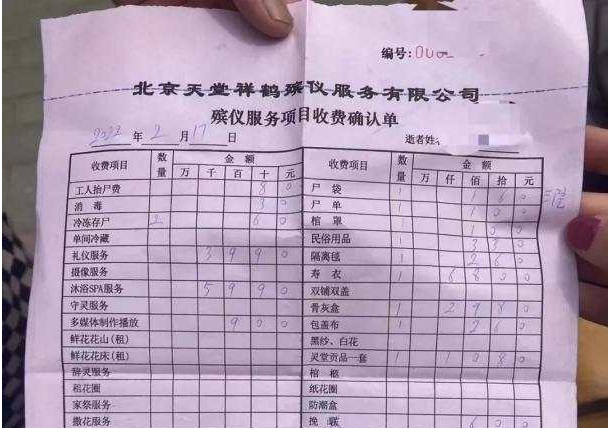 编号:
北京天堂祥鹤殡仪服务有限公司
殡仪服务项目收费确认单
2022 年 2 月 17 日 逝者姓
收费项目 数量 金额 万 千 百 十 元 收费项目 数量 金额 万 仟 佰 拾 元
工人抬尸费 8 0 尸袋 1 1 6 0
消毒 3 0 尸单 1 1 0 0
冷冻存尸 2 6 0 棺罩 1 1 0 0
单间冷藏 民俗用品 1 3 3 0
礼仪服务 3 9 9 0 隔离毯 1 2 6 0
摄像服务 寿衣 1 6 8 0 0
沐浴SPA服务 5 9 9 0 双铺双盖
守灵服务 骨灰盒 1 2 9 8 0
多媒体制作播放 9 0 0 包盖布 1 2 6 0
鲜花花山(租) 黑纱、白花
鲜花花床(租) 灵堂贡品一套 1 1 0 8 0
辞灵服务 棺柩
租花圈 纸花圈
家祭服务 防潮盒
撒花服务 挽 6 0 0